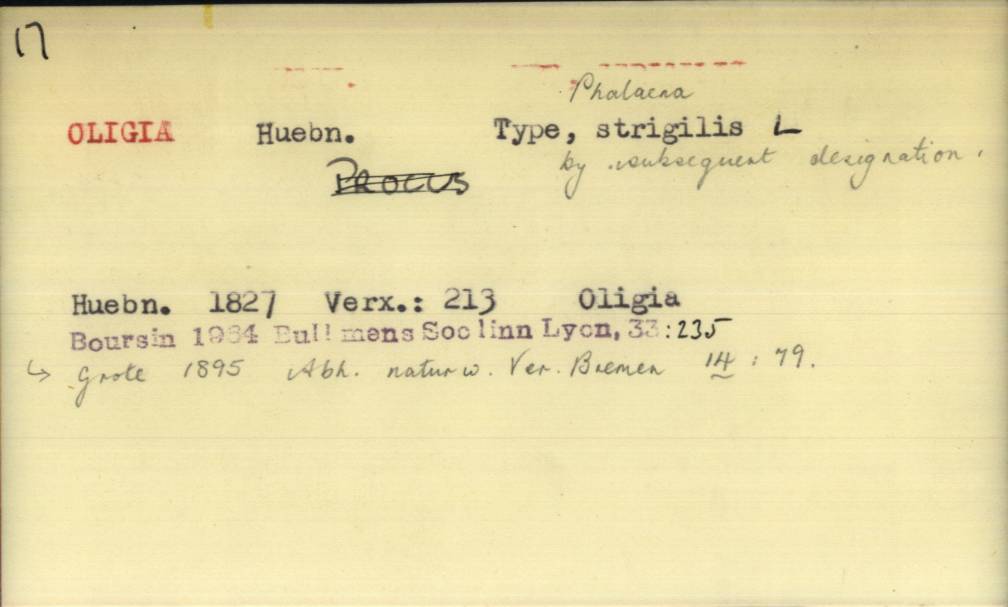 17
Phalaena
OLIGIA Huebn. Type, strigilis L
by subsequent designation.
PROCUS
Huebn. 1827 Verx.: 213 Oligia
Boursin 1964 Bull mens Soc linn Lyon, 33:235
↳ Grote 1895 Abh. naturw. Ver. Bremen 14 : 79.